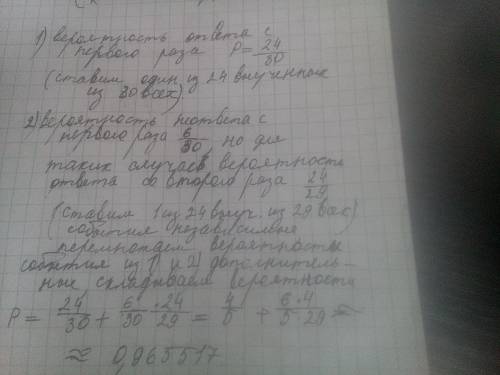 1) вероятность ответа с
первого раза P = 24/30
(ставим один из 24 выученных
из 30 всех).
2) вероятность неответа с
первого раза 6/30, но для
таких случаев вероятность
ответа со второго раза 24/29
(ставим 1 из 24 выуч. из 29 всех)
события независимые
перемножаем вероятности
события из 1) и 2) дополнитель-
ные складываем вероятности
P = 24/30 + 6/30 · 24/29 = 4/5 + 6·4/5·29 ≈
≈ 0,965517